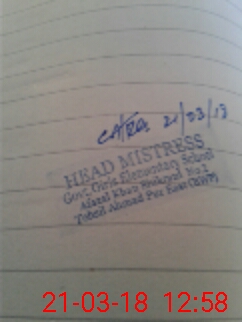 21/03/18
HEAD MISTRESS
Govt. Girls Elementary School
Afazal Khan Bhakyal No.2
Tehsil Ahmad Pur East (BWP)
21-03-18 12:58